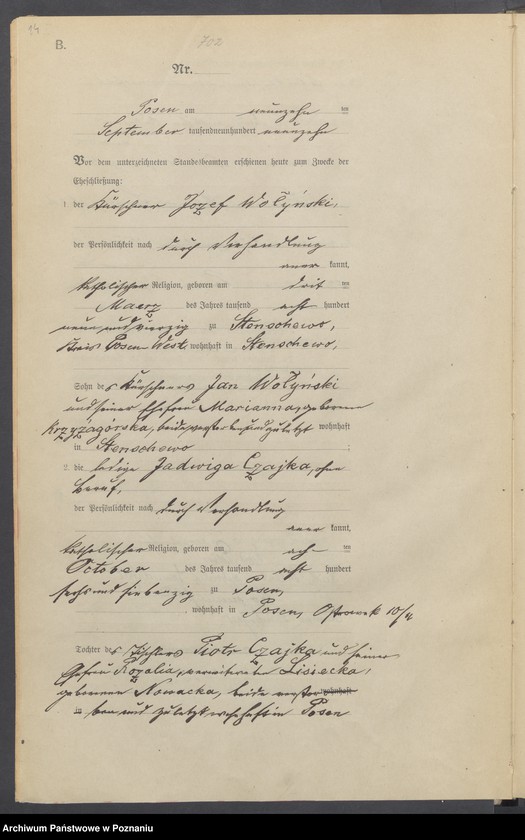 94
B.
702
Nr.
Posen am neunzehn ten
September tausendneunhundert neunzehn
Vor dem unterzeichneten Standesbeamten erschienen heute zum Zwecke der
Eheschließung:
1. der Kürschner Jozef Wołyński,
der Persönlichkeit nach durch Verhandlung
aner kannt,
katholischer Religion, geboren am dritten
Maerz des Jahres tausend acht hundert
neunundvierzig zu Stenschewo,
Kreis Posen-West, wohnhaft in Stenschewo,
Sohn des Kürschners Jan Wołyński
und seiner Ehefrau Marianna, geborenen
Krzyżagórska, beide verstorben und zuletzt wohnhaft
in Stenschewo ;
2. die ledige Jadwiga Czajka, ohne
Beruf,
der Persönlichkeit nach durch Verhandlung
aner kannt,
katholischer Religion, geboren am ach ten
October des Jahres tausend acht hundert
sechsundsiebenzig zu Posen,
, wohnhaft in Posen, Ostrowek 10/11
Tochter des Tischlers Piotr Czajka und seiner
Ehefrau Rozalia, verwitweten Lisiecka,
geborenen Nowacka, beide verstor wohnhaft
in ben und zuletzt wohnhaft in Posen
Archiwum Państwowe w Poznaniu